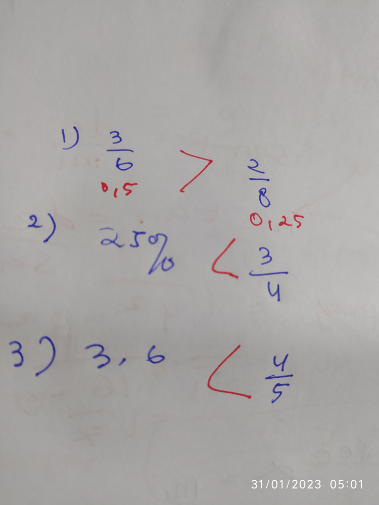 1) 3/6 > 2/8
0,5 0,25
2) 25% < 3/4
3) 3.6 < 4/5
31/01/2023 05:01